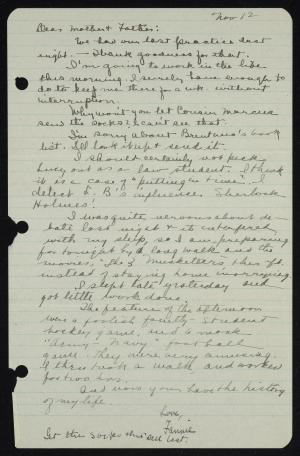 Nov 12
Dear Mother & Father:
We had our last practice last
night. - Thank goodness for that.
I'm going to work in the libe
this morning. I surely have enough to
do to keep me there for a wk. without
interruption.
Why won't you let Cousin Marcia
send the socks? I can't see that.
I'm sorry about Brentano's book
list. I'll look it up & send it.
I should certainly not pick
Lucy out as a law student. I think
it is a case of "putting in time". I
detect L. B's influence, Sherlock
Holmes!
I was quite nervous about de-
bate last night & it interfered
with my sleep, so I am preparing
for tonight by a long walk and the
movies, "The 3 Musketeers" this aft.
instead of staying home worrying.
I slept late yesterday and
got little work done.
The feature of the afternoon
was a foolish faculty-student
hockey game, and a mock
"Army - Navy" football
game. They were very amusing.
I then took a walk and worked
for two hrs.
And now you have the history
of my life.
Love,
Fannie
Got the socks this